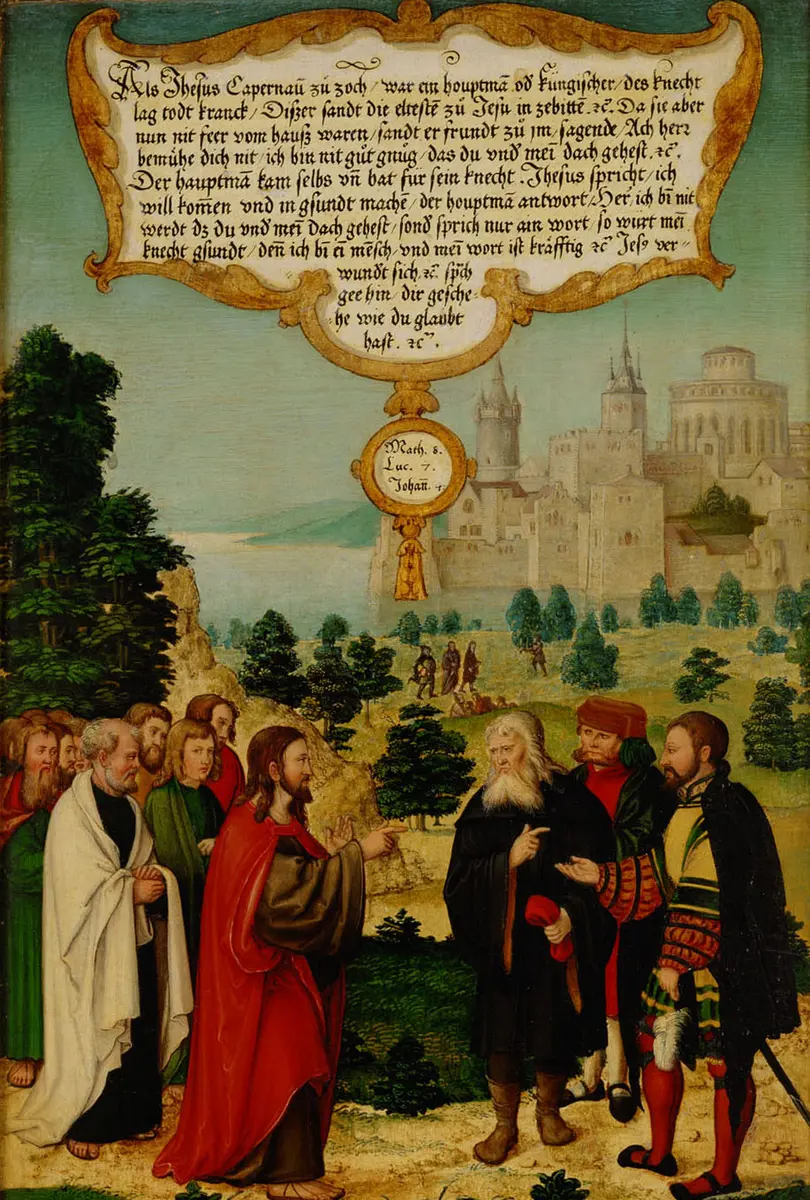 Als Jhesus Capernaū zů zoch / war ein houptmā od̄ Kūngischer / des knecht
lag todt kranck / Dißer sandt die eltestē zů Jesu in zebittē. ꝛc̄. Da sie aber
nun nit feer vom hauß waren / sandt er frundt zů jm / sagende / Ach herr
bemühe dich nit / ich bin nit gůt gnůg / das du vnd̄ mei͞ dach gehest. ꝛc̄.
Der hauptmā kam selbs vn̄ bat fur sein knecht. Jhesus spricht / ich
will kom̄en vnd in gsundt machē / der houptmā antwort / Her, ich bī nit
werdt dz du vnd̄ mei͞ dach gehest / sond̄ sprich nur ain wort / so wurt mei͞
knecht gsundt / den̄ ich bī ei͞ mēsch / vnd mei͞ wort ist kräfftig ꝛc̄ Jesꝰ ver⸗
wundt sich. ꝛc̄. sp̄ch
gee hin / dir gesche⸗
he wie du glaubt
hast. ꝛc̄.
Math. 8.
Luc. 7.
Johañ. 4.